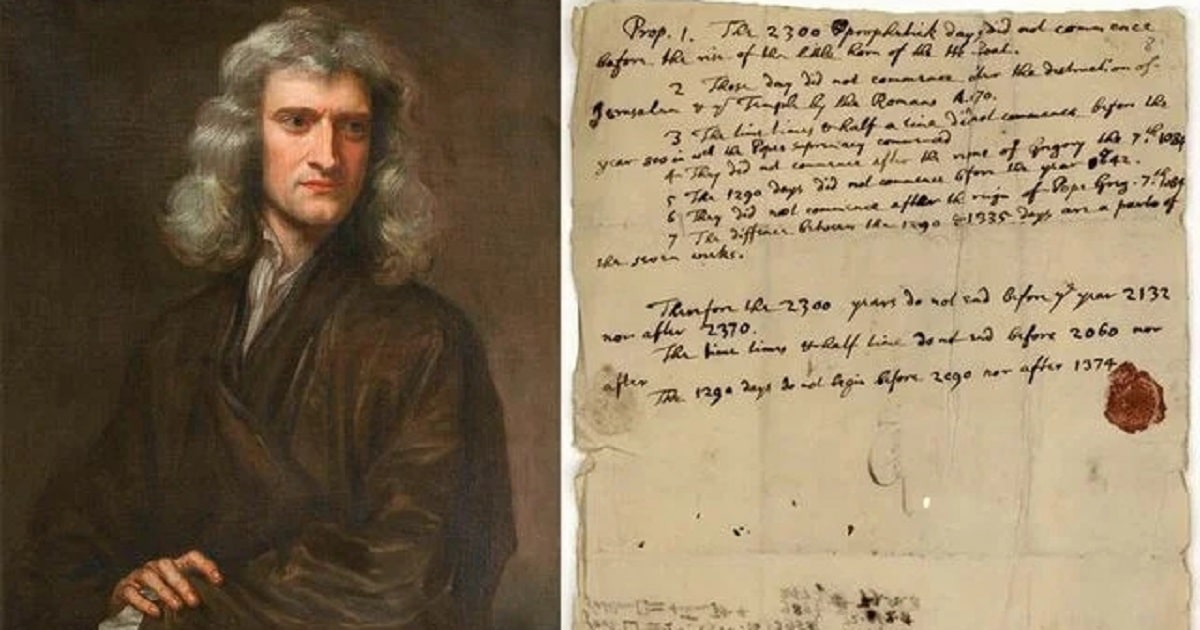 Prop. 1. The 2300 prophetick days did not commence
before the rise of the little horn of the He Goat.
2 Those day did not commence after the destruction of
Jerusalem & ye Temple by the Romans A. 70.
3 The time times & half a time did not commence before the
year 800 in wch the Popes supremacy commenced
4 They did not commence after the reigne of Gregory the 7th. 1084
5 The 1290 days did not commence before the year 842.
6 They did not commence after the reign of Pope Greg. 7th. 1084
7 The diffence between the 1290 & 1335 days are a parts of
the seven weeks.
Therefore the 2300 years do not end before ye year 2132
nor after 2370.
The time times & half time do not end before 2060 nor
after
The 1290 days do not begin before 2090 nor after 1374